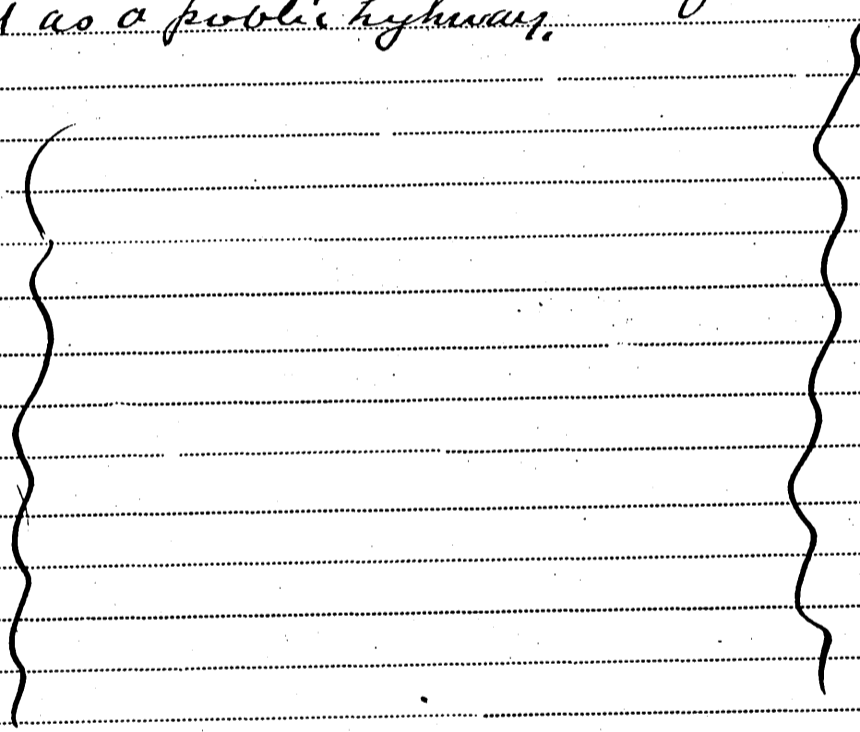 as a public hyhway.